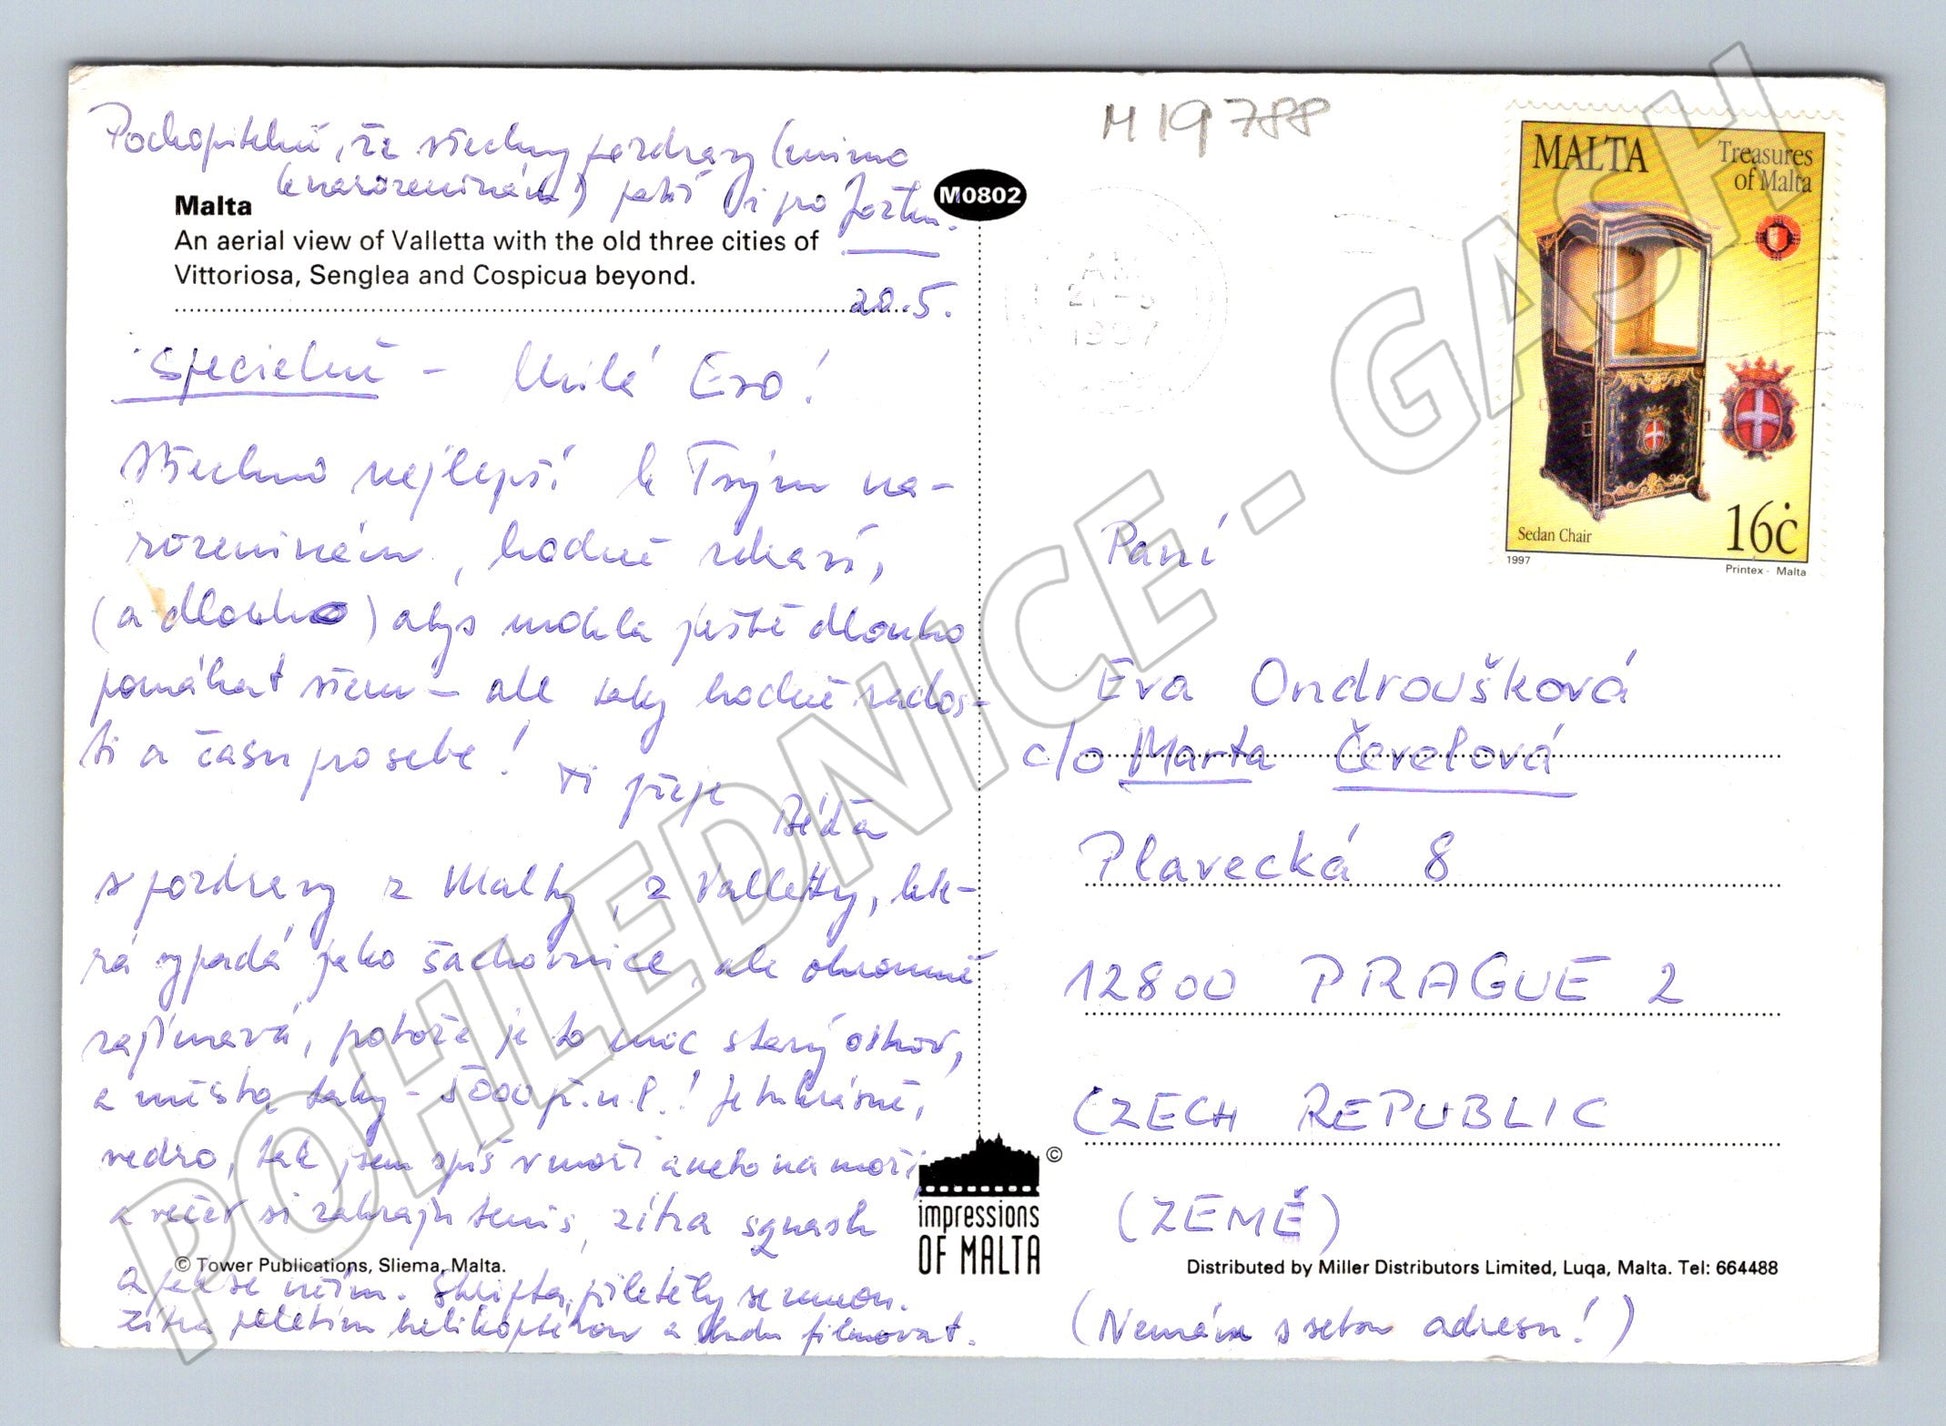 Pochopitelně, že všechny pozdravy (mimo
k narozeninám) patří i pro
20.5.
Malta
An aerial view of Valletta with the old three cities of
Vittoriosa, Senglea and Cospicua beyond.
M0802
Specielně - Milá Evo!
Všechno nejlepší k Tvým na-
rozeninám, hodně zdraví,
(a dlouho) abys mohla ještě dlouho
pomáhat všem - ale taky hodně rados-
ti a času pro sebe!
Ti přeje
Béďa
s pozdravy z Malty, z Valletty, kte-
rá vypadá jako šachovnice, ale ohromně
zajímavá, protože je to moc starý ostrov,
a města taky - 5000 př.n.l.! Je tu krásně,
vedro, tak jsem spíš v moři anebo na moři,
a večer si zahraju tenis, zítra squash
a pak se
Zítra poletím helikoptérou a budu filmovat.
© Tower Publications, Sliema, Malta.
impressions
OF MALTA
©
M 19788
AM
1997
MALTA
Treasures
of Malta
Sedan Chair
16ċ
1997
Printex - Malta
Paní
Eva Ondroušková
c/o Marta Čevelová
Plavecká 8
12800 PRAGUE 2
CZECH REPUBLIC
(ZEMĚ)
Distributed by Miller Distributors Limited, Luqa, Malta. Tel: 664488
(Nemám s sebou adresu!)
POHLEDNICE - GASH